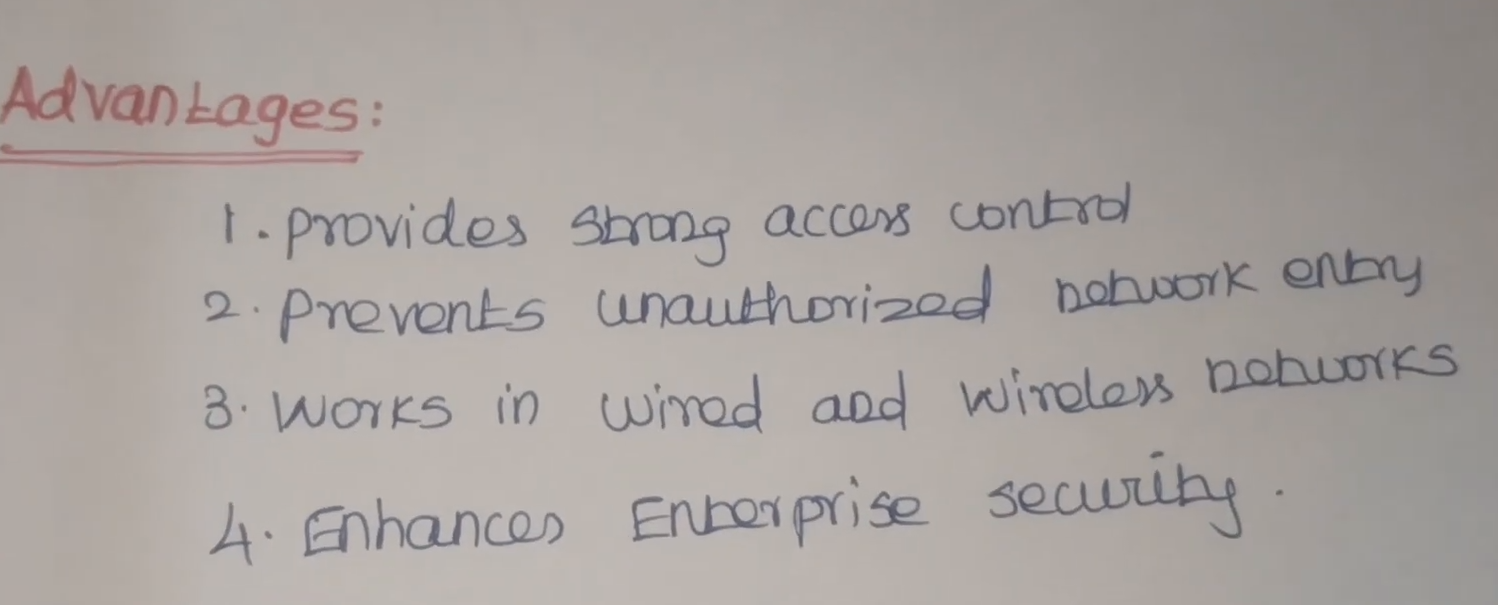 Advantages:
1. provides strong access control
2. prevents unauthorized network entry
3. Works in wired and wireless networks
4. Enhances Enterprise security.